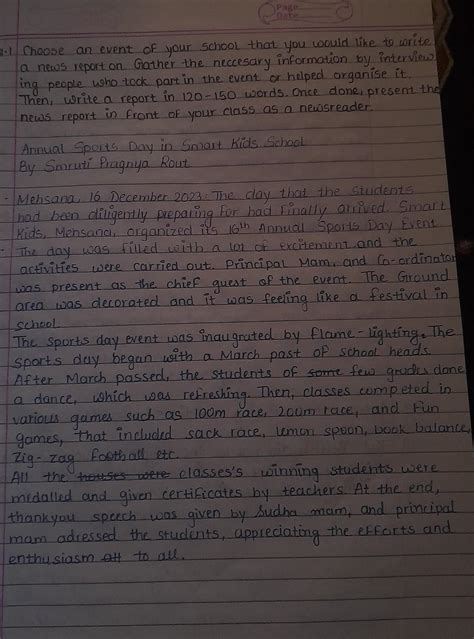 Page
Date
Q-1 Choose an event of your school that you would like to write
a news report on. Gather the neccesary information by interview
ing people who took part in the event or helped organise it.
Then, write a report in 120-150 words. Once done, present the
news report in front of your class as a newsreader.
Annual Sports Day in Smart Kids School
By Smruti Pragnya Rout
- Mehsana, 16 December 2023: The day that the students
had been diligently preparing for had finally arrived. Smart
Kids, Mehsana, organized its 16th Annual Sports Day Event
- The day was filled with a lot of excitement and the
activities were carried out. Principal Mam, and Co-ordinator
was present as the chief guest of the event. The Ground
area was decorated and it was feeling like a festival in
school.
The sports day event was inaugrated by flame-lighting. The
sports day began with a March past of school heads.
After March passed, the students of some few grades done
a dance, which was refreshing. Then, classes competed in
various games such as 100m race, 200m race, and Fun
games, that included sack race, lemon spoon, book balance,
Zig-zag football etc.
All the houses were classes's winning students were
medalled and given certificates by teachers. At the end,
thankyou speech was given by Sudha mam, and principal
mam adressed the students, appreciating the efforts and
enthusiasm to all.